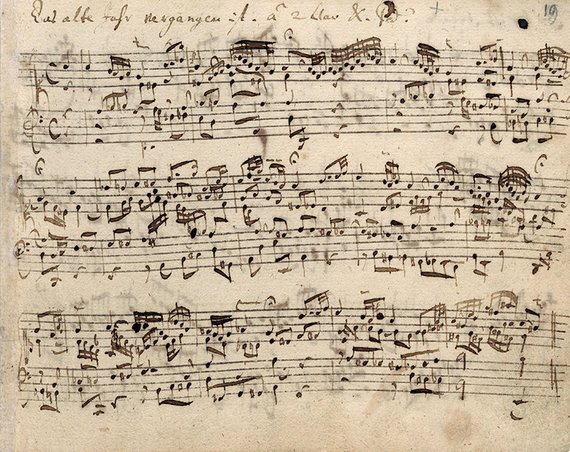 Das alte Jahr vergangen ist. â 2 Clav. & Ped. 19